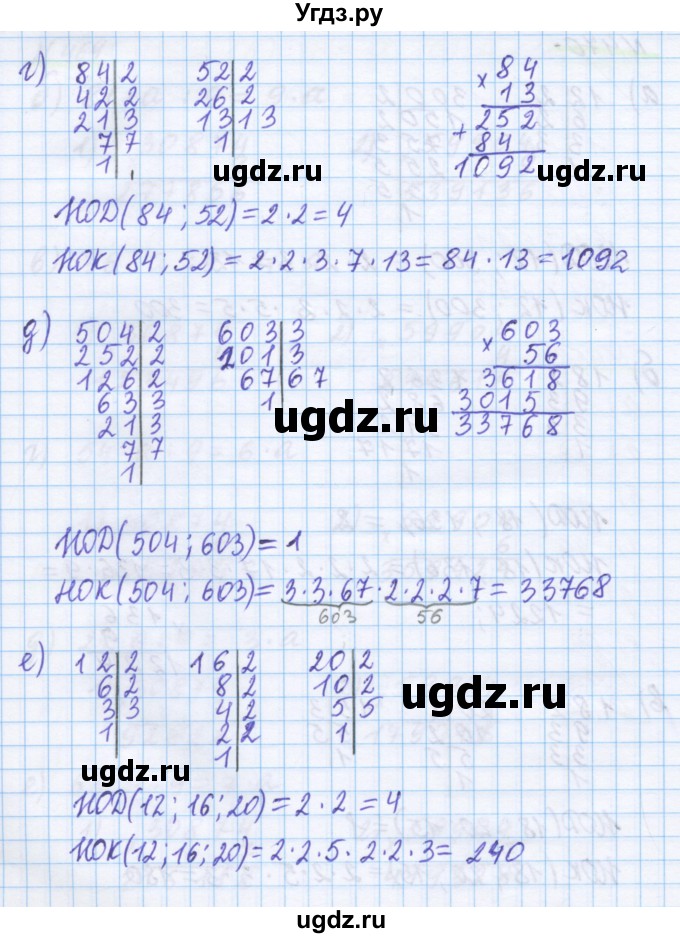 Угдз.ру
г) 84|2 52|2 84
42|2 26|2 × 13
21|3 13|13 252
7|7 1| + 84
1| 1092
ugdz.ru ugdz.ru
НОД(84; 52) = 2·2 = 4
НОК(84; 52) = 2·2·3·7·13 = 84·13 = 1092
д) 504|2 603|3 603
252|2 201|3 × 56
126|2 67|67 3618
63|3 1| 3015
21|3 33768
7|7
1|
ugdz.ru
НОД(504; 603) = 1
НОК(504; 603) = 3·3·67·2·2·2·7 = 33768
603 56
е) 12|2 16|2 20|2
6|2 8|2 10|2
3|3 4|2 5|5
1| 2|2 1|
1|
ugdz.ru
ugdz.ru
НОД(12; 16; 20) = 2·2 = 4
НОК(12; 16; 20) = 2·2·5·2·2·3 = 240
ugdz.ru